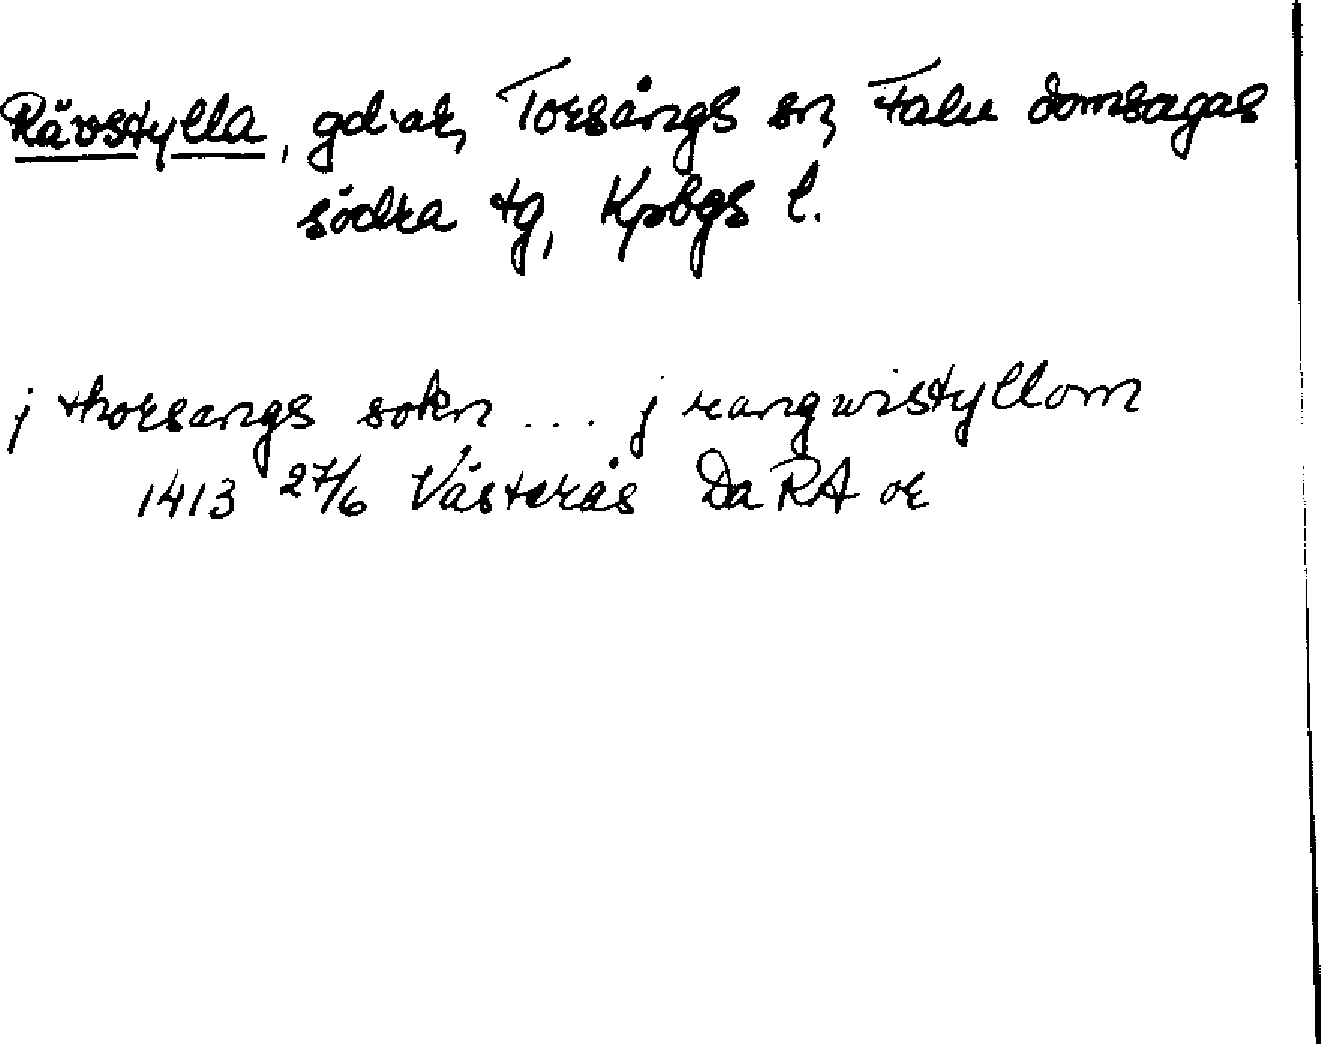 Rävstylla, gd·ar, Torsångs sn, Falu domsagas
södra tg, Kpbgs l.
j thorsangs sokn ... j rangwistyllom
1413 27/6 Västerås Da RA or